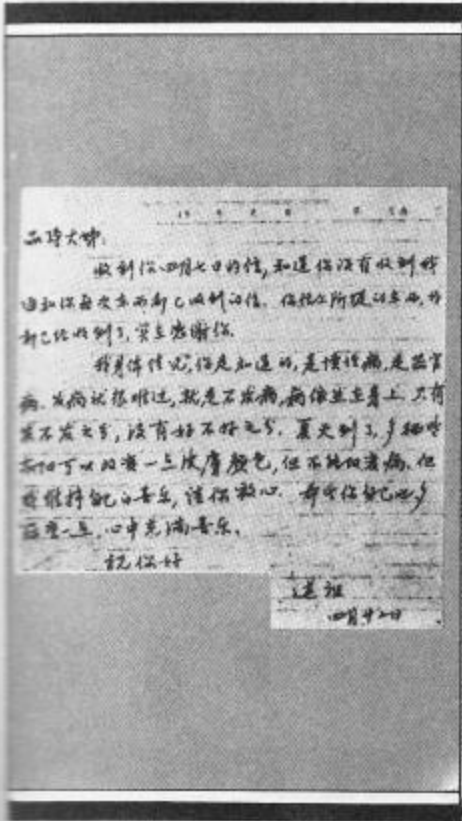 品琤大姊:
收到你四月七日的信,知道你没有收到我
 和你每次东西都已收到的信. 你信上所提的东西,我
都已经收到了,实在感谢你.
我身体情况,你是知道的,是慢性病,是器官
病. 发病就很难过,就是不发病,病依然在身上. 只有
发不发之分,没有好不好之分. 夏天到了,多晒些
 可以改变一点皮膚颜色,但不能改变病. 但
我维持自己的喜乐,请你放心. 希望你自己也多
保重一点,心中充满喜乐.
祝你好
述祖
四月廿二日